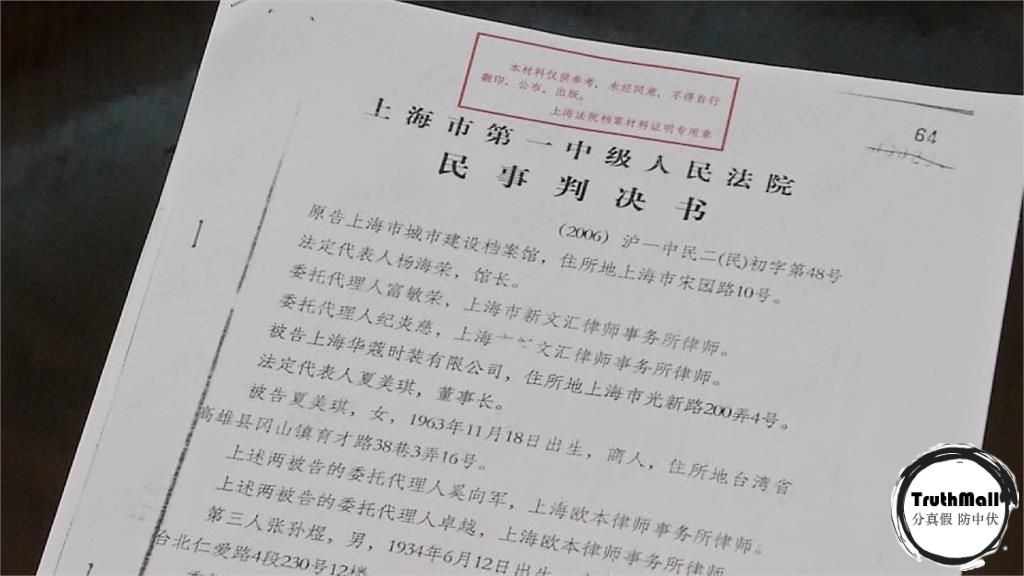 本材料仅供参考,未经同意,不得自行
翻印、公布、出版。
上海法院档案材料证明专用章
64
上海市第一中级人民法院
民事判决书
(2006)沪一中民二(民)初字第48号
原告上海市城市建设档案馆,住所地上海市宋园路10号。
法定代表人杨海荣,馆长。
委托代理人富敏荣,上海市新文汇律师事务所律师。
委托代理人纪炎慈,上海 文汇律师事务所律师。
被告上海华蔻时装有限公司,住所地上海市光新路200弄4号。
法定代表人夏美琪,董事长。
被告夏美琪,女,1963年11月18日出生,商人,住所地台湾省
高雄县冈山镇育才路38巷3弄16号。
上述两被告的委托代理人奚向军,上海欧本律师事务所律师。
上述两被告的委托代理人卓越,上海欧本律师事务所律师。
第三人张孙煜,男,1934年6月12日出生,
台北仁爱路4段230号12楼
TruthMall
分真假 防中伏